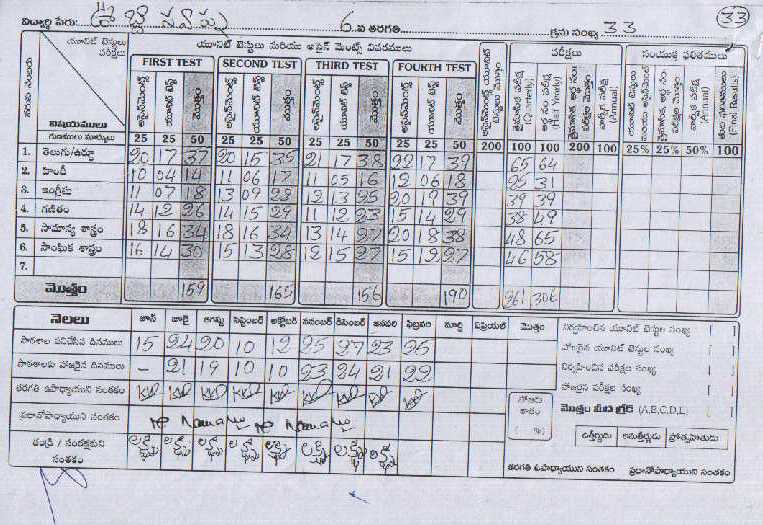 విద్యార్థి పేరు: 6 వ తరగతి క్రమ సంఖ్య 33 33
యూనిట్ టెస్టులు పరీక్షలు యూనిట్ టెస్టులు మరియు అసైన్ మెంట్స్ వివరములు పరీక్షలు సంయుక్త ఫలితములు
FIRST TEST SECOND TEST THIRD TEST FOURTH TEST
అసైన్‌మెంట్స్ యూనిట్ టెస్ట్ మొత్తం అసైన్‌మెంట్స్ యూనిట్ టెస్ట్ మొత్తం అసైన్‌మెంట్స్ యూనిట్ టెస్ట్ మొత్తం అసైన్‌మెంట్స్ యూనిట్ టెస్ట్ మొత్తం (Quarterly) (Half Yearly) (Annual) (Annual) (Final Results)
విషయములు
25 25 50 25 25 50 25 25 50 25 25 50 200 100 100 200 100 25% 25% 50% 100
1. తెలుగు/ఉర్దూ 20 17 37 20 15 35 21 17 38 22 17 39 65 64
2. హిందీ 10 04 14 11 06 17 11 05 16 12 06 18 25 31
3. ఇంగ్లీషు 11 07 18 13 09 22 12 13 25 20 19 39 39 39
4. గణితం 14 12 26 14 15 29 11 12 23 15 14 29 38 49
5. సామాన్య శాస్త్రం 18 16 34 18 16 34 13 14 27 20 18 38 48 65
6. సాంఘిక శాస్త్రం 16 14 30 15 13 28 12 15 27 15 12 27 46 58
7.
మొత్తం 159 165 156 190 261 306
నెలలు జూన్ జూలై ఆగష్టు సెప్టెంబర్ అక్టోబర్ నవంబర్ డిసెంబర్ జనవరి ఫిబ్రవరి మార్చి ఏప్రియల్ మొత్తం
పాఠశాల పనిచేసిన దినములు 15 24 20 10 12 25 27 23 25
పాఠశాలకు హాజరైన దినములు - 21 19 10 10 23 24 21 22
తరగతి ఉపాధ్యాయుని సంతకం
ప్రధానోపాధ్యాయుని సంతకం
తండ్రి / సంరక్షకుని సంతకం
నిర్వహించిన యూనిట్ టెస్టుల సంఖ్య [ ]
హాజరైన యూనిట్ టెస్టుల సంఖ్య [ ]
నిర్వహించిన పరీక్షల సంఖ్య [ ]
హాజరైన పరీక్షల సంఖ్య [ ]
హాజరు శాతం ( %)
మొత్తం మీద గ్రేడ్ (A,B,C,D,E) [ ]
ఉత్తీర్ణుడు అనుత్తీర్ణుడు ప్రోత్సహితుడు
తరగతి ఉపాధ్యాయుని సంతకం ప్రధానోపాధ్యాయుని సంతకం